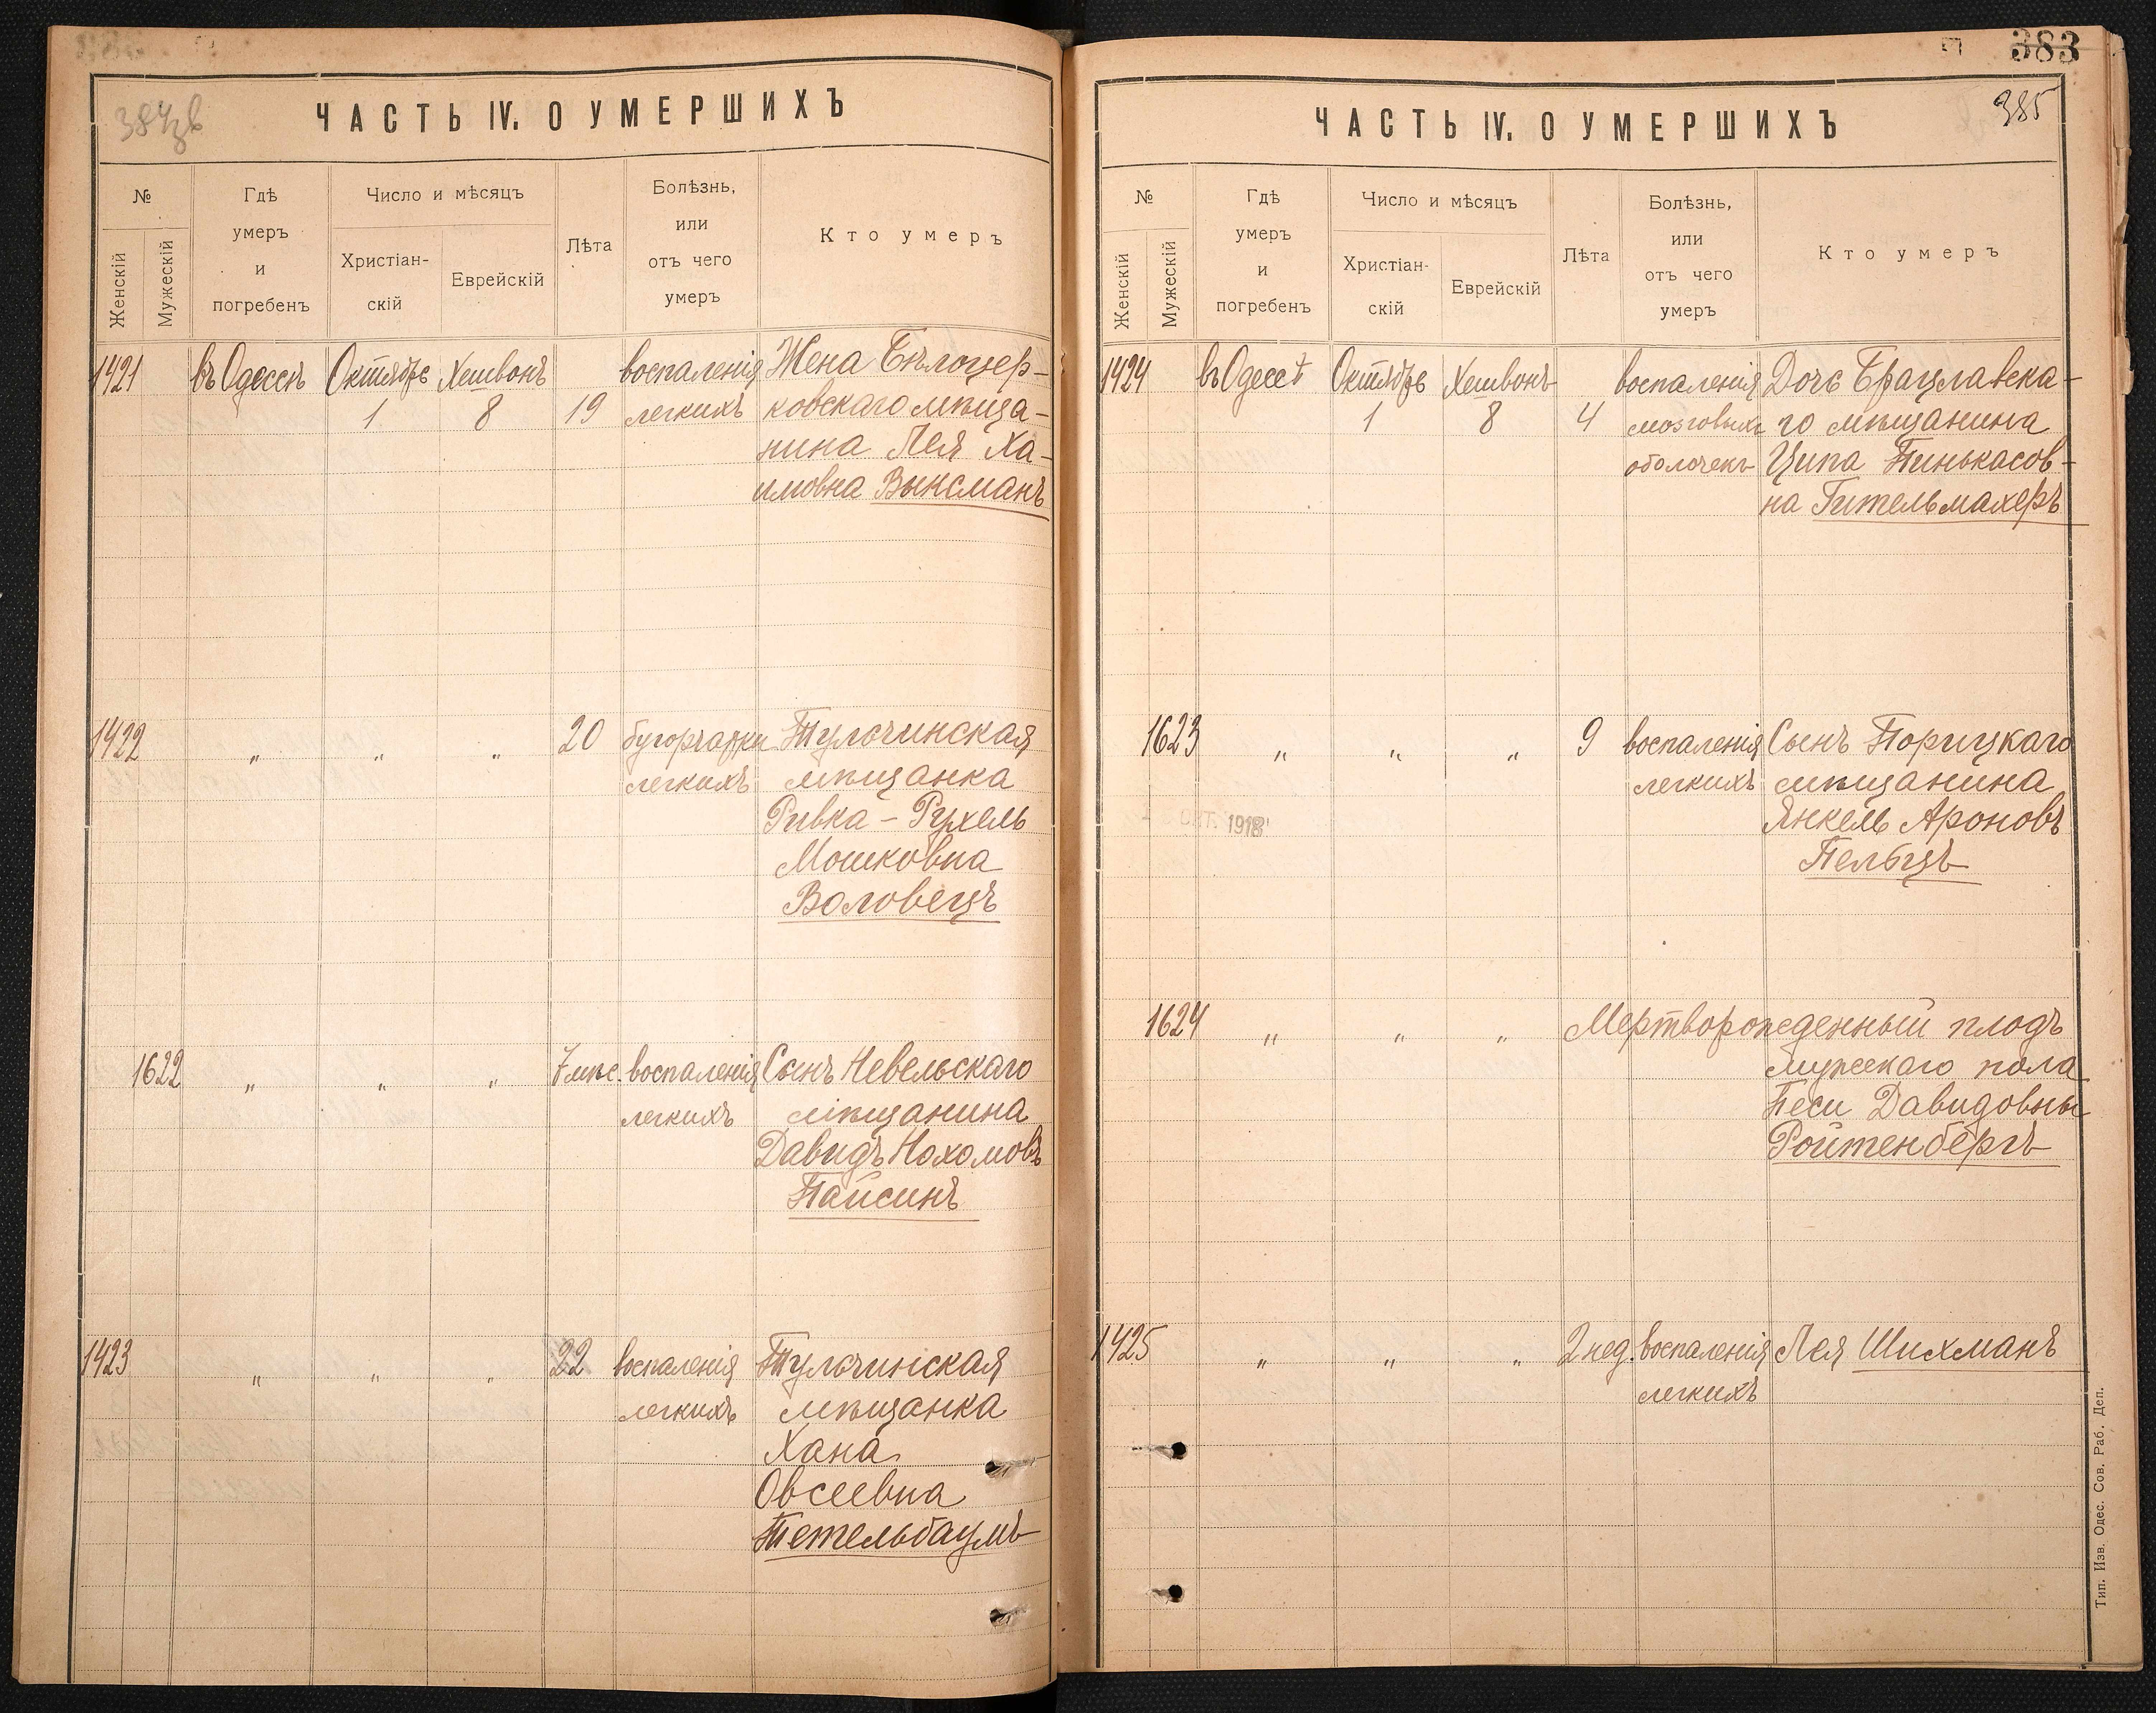 384зв
ЧАСТЬ IV. О УМЕРШИХЪ
№
Женскій
Мужескій
Гдѣ
умеръ
и
погребенъ
Число и мѣсяцъ
Христіан-
скій
Еврейскій
Лѣта
Болѣзнь,
или
отъ чего
умеръ
Кто умеръ
1421 въ Одессѣ Октябрь Хешвонъ воспаленія Жена Бѣлоцер-
1 8 19 легкихъ ковскаго мѣща-
нина Лея Ха-
имовна Выксманъ
1422 „ „ „ 20 бугорчатки Тульчинская
легкихъ мѣщанка
Ривка - Рухель
Мошковна
Воловецъ
1622 „ „ „ 7 мѣс. воспаленія Сынъ Невельскаго
легкихъ мѣщанина
Давидъ Нохомовъ
Пайсинъ
1423 „ „ „ 22 воспаленія Тульчинская
легкихъ мѣщанка
Хана
Овсеевна
Тетельбаумъ
383
385
ЧАСТЬ IV. О УМЕРШИХЪ
№
Женскій
Мужескій
Гдѣ
умеръ
и
погребенъ
Число и мѣсяцъ
Христіан-
скій
Еврейскій
Лѣта
Болѣзнь,
или
отъ чего
умеръ
Кто умеръ
1424 въ Одессѣ Октябрь Хешвонъ воспаленія Дочь Брацлавска-
1 8 4 мозговыхъ го мѣщанина
оболочекъ Ципа Пинькасов-
на Гительмахеръ
1623 „ „ „ 9 воспаленія Сынъ Порицкаго
легкихъ мѣщанина
ОКТ. 1918 Янкель Ароновъ
Пельцъ
1624 „ „ „ Мертворожденный плодъ
мужескаго пола
Песи Давидовны
Ройтенбергъ
1425 „ „ „ 2 нед. воспаленія Лея Шихманъ
легкихъ
Тип. Изв. Одес. Сов. Раб. Деп.